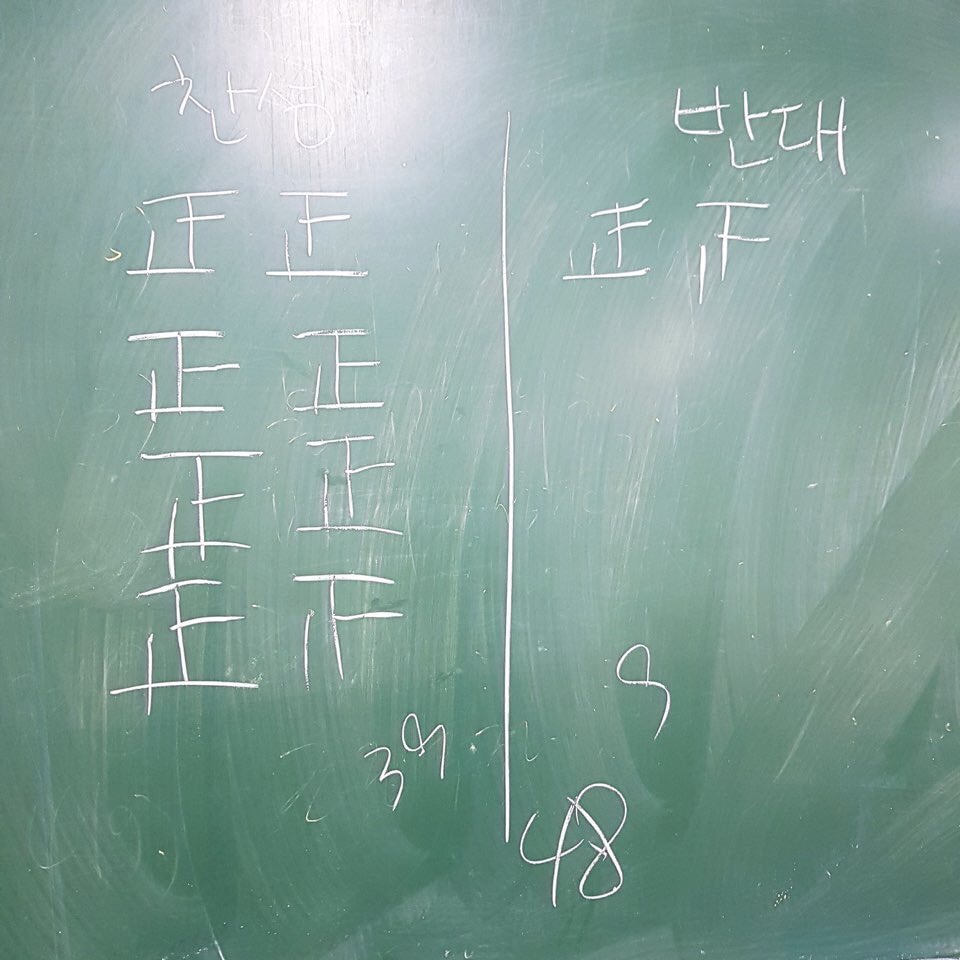 찬성
正 正
正 正
正 正
正 𤴓
39
반대
正 𤴓
9
48